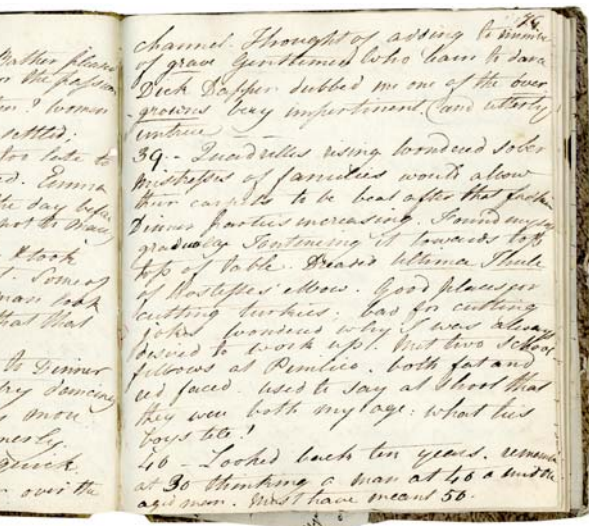 Rather pleased
or the passion
women
settled.
too late to
Emma
the day before
not to dance
took
Some
man look
that that
to Dinner
try dancing
more
quick
over the
channel. Thought of adding to number
of grave Gentlemen who learn to dance
Dick Dapper dubbed me one of the over
-growns very impertinent (and utterly
untrue
39 - Quadrilles rising wondered sober
mistresses of families would allow
their carpets to be beat after that fashion
Dinner parties increasing. Found myself
gradually Tontineing it towards top
top of Table. Dreaded Ultima Thule
of Hostesses elbow. Good places for
cutting turkies; bad for cutting
jokes wondered why I was always
desired to work up! Met two school
fellows at Pimlico. both fat and
red faced. used to say at school that
they were both my age: what lies
boys tell!
40 - Looked back ten years. remember
at 30 thinking a man at 40 a middle
aged man. Must have meant 50.